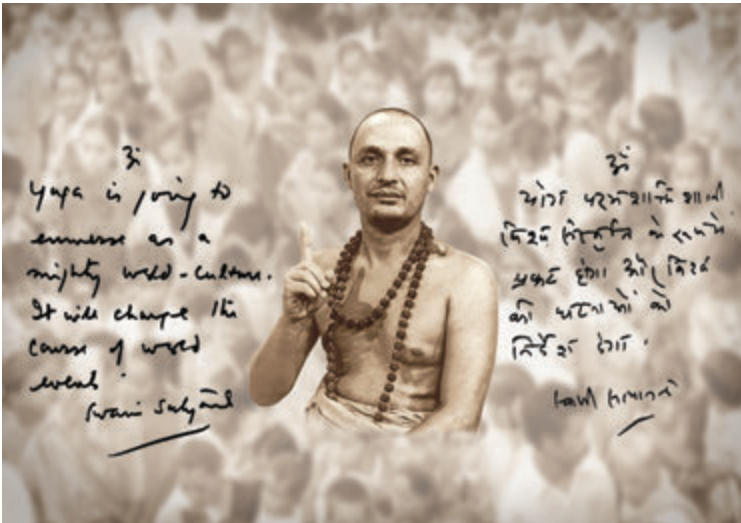 ॐ
Yoga is going to
emmerse as a
mighty world-culture.
It will change the
course of world
events
Swami Satyanand
ॐ
योग परमशक्तिशाली
विश्व संस्कृति के रूप में
प्रकट होगा और विश्व
की घटनाओं को
निर्देश देगा.
स्वामी सत्यानन्द